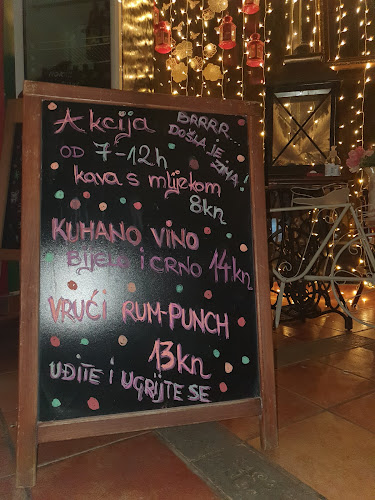 Akcija BRRRR...
DOŠLA JE
ZIMA!
OD 7-12h
kava s mlijekom
8kn
KUHANO VINO
BIJELO I CRNO 14kn
VRUĆI RUM-PUNCH
13kn
UĐITE I UGRIJTE SE